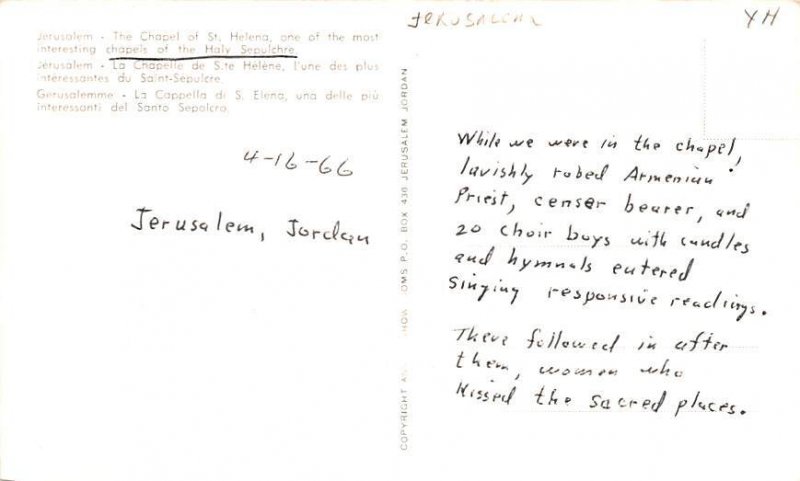 JERUSALEM
YH
Jerusalem - The Chapel of St. Helena, one of the most
interesting chapels of the Holy Sepulchre.
Jerusalem - La Chapelle de S.te Hélène, l'une des plus
intéressantes du Saint-Sépulcre.
Gerusalemme - La Cappella di S. Elena, una delle più
interessanti del Santo Sepolcro.
4-16-66
Jerusalem, Jordan
COPYRIGHT P.O. BOX 436 JERUSALEM JORDAN
While we were in the chapel,
lavishly robed Armenian
Priest, censer bearer, and
20 choir boys with candles
and hymnals entered
singing responsive readings.
There followed in after
them, women who
kissed the sacred places.